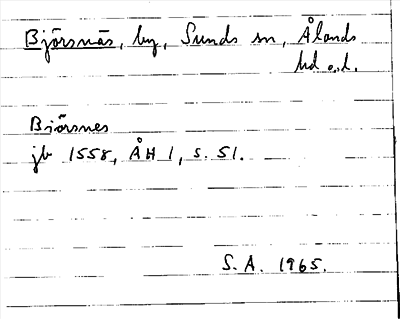 Björsnäs, by, Sunds sn, Ålands
hd o. l.
Biörsnes
jb 1558, ÅH 1, s. 51.
S. A. 1965.